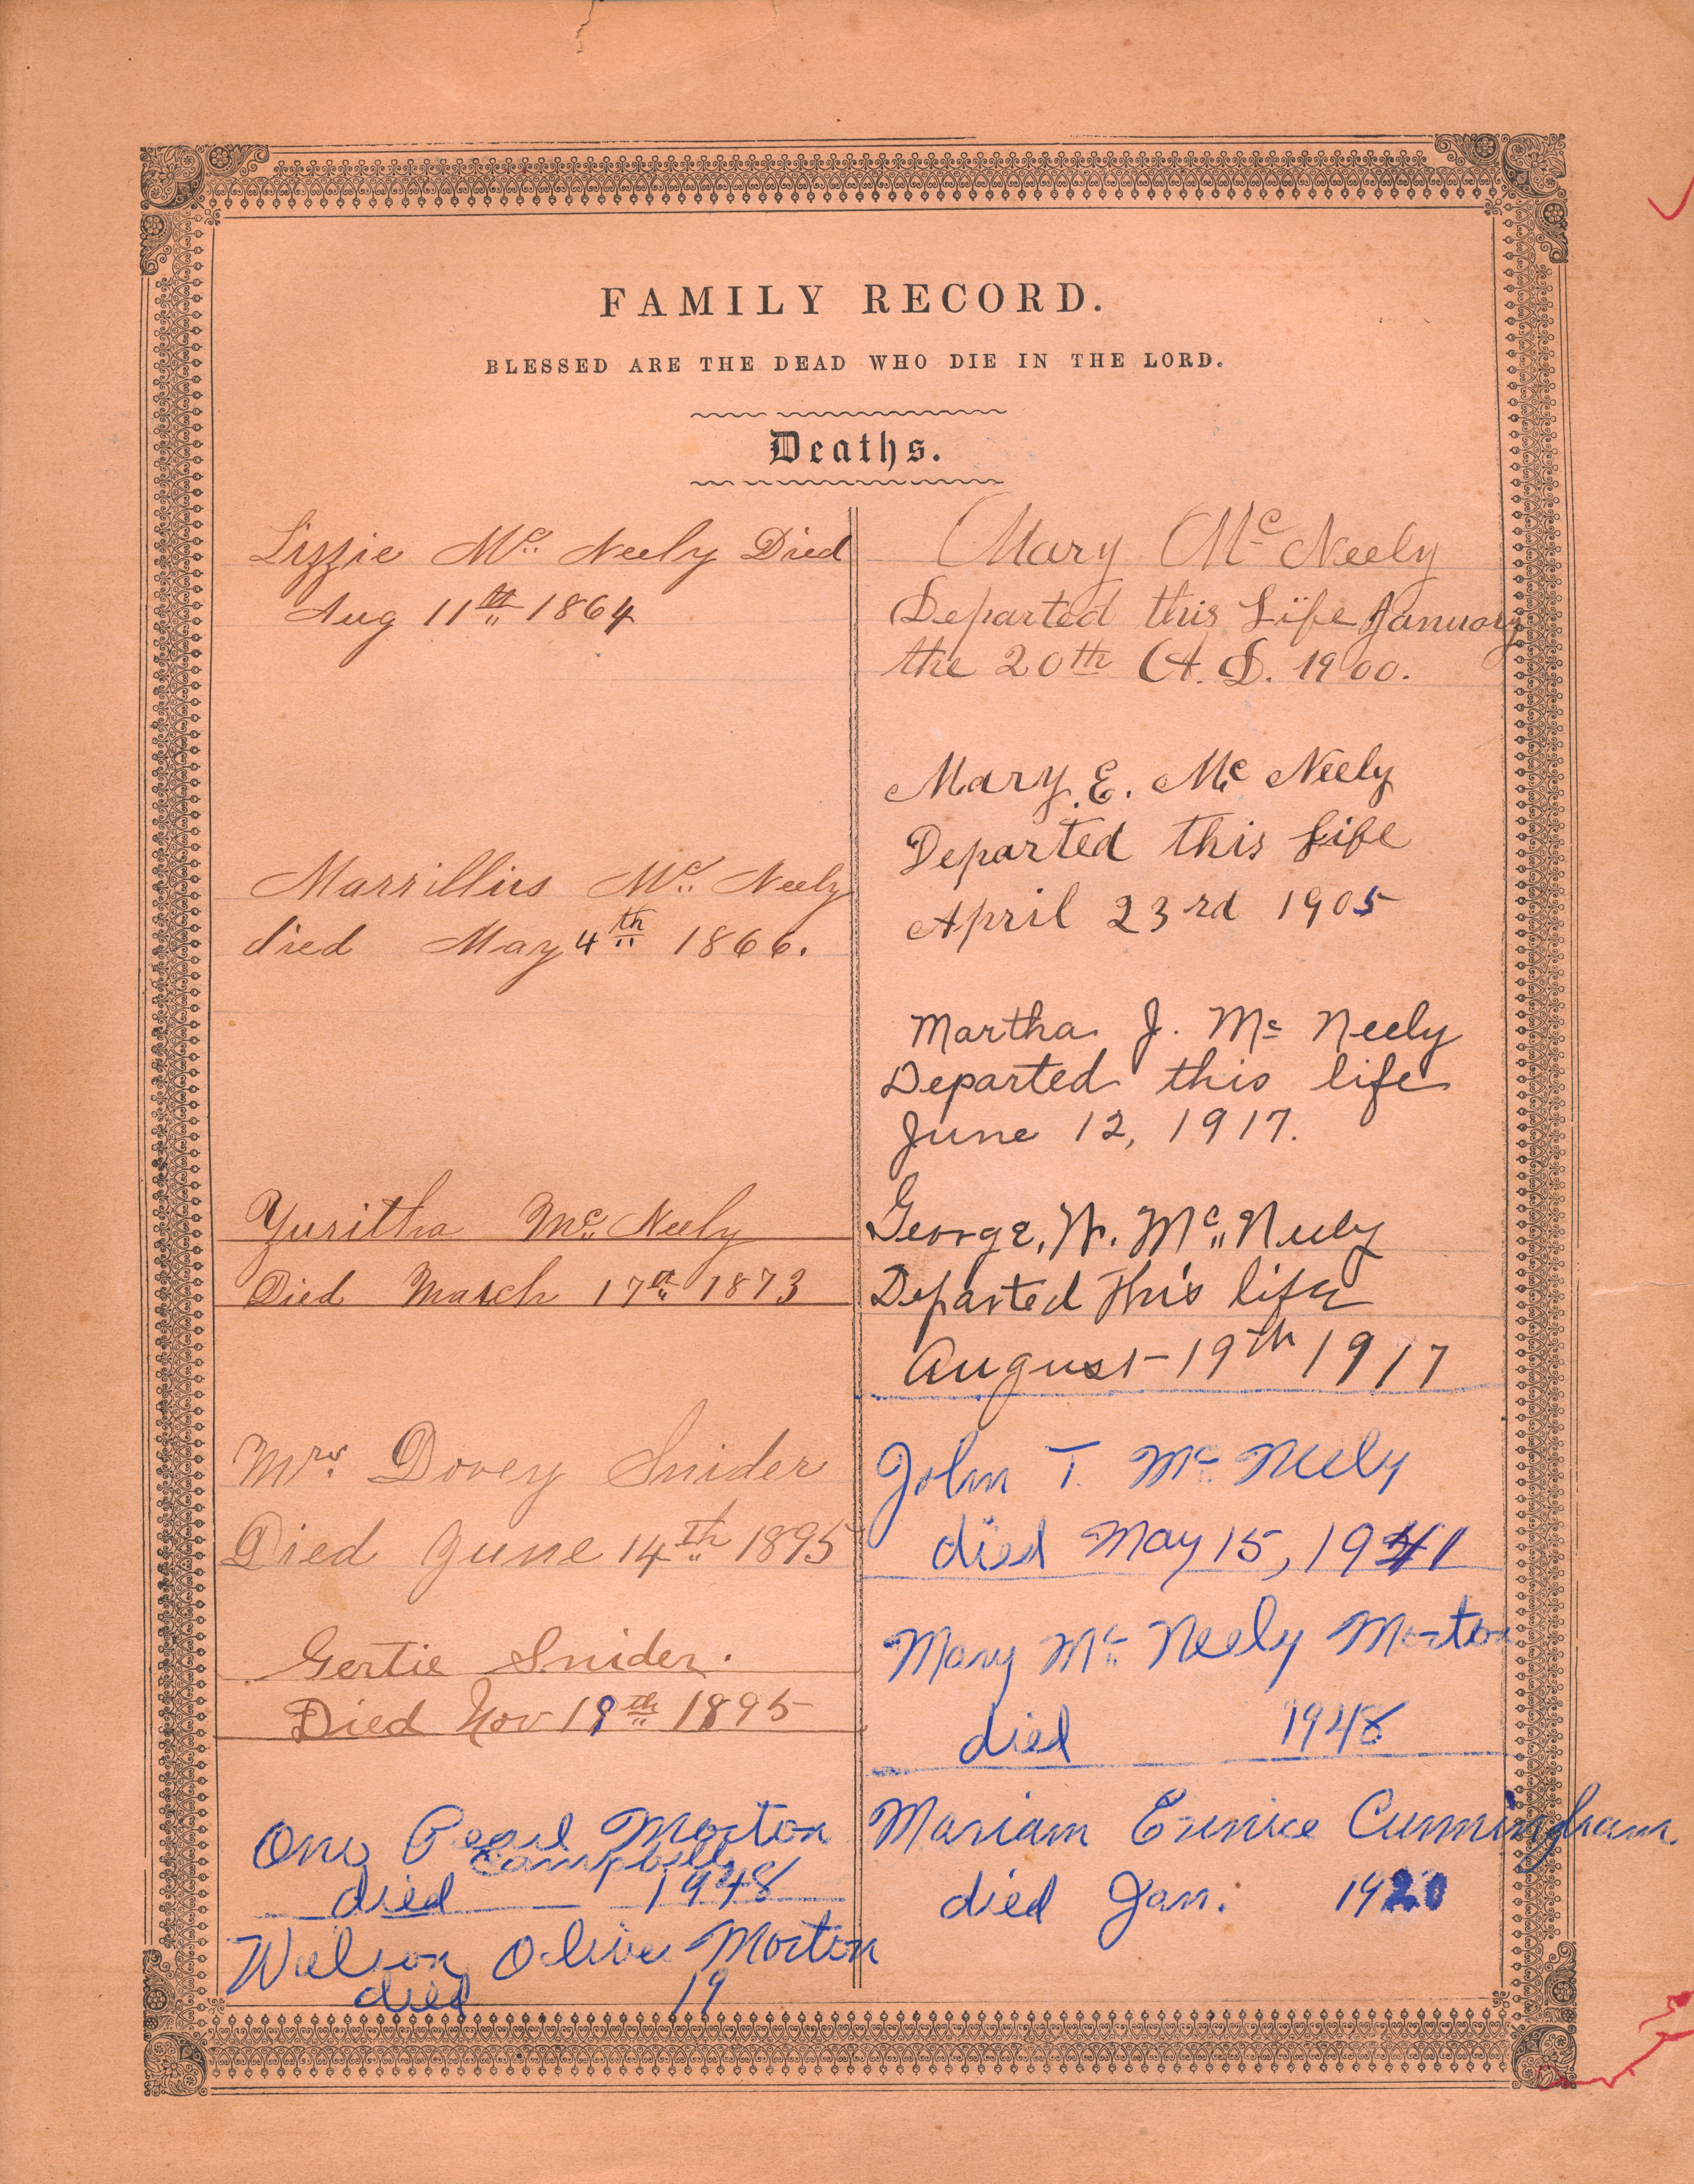 FAMILY RECORD.
BLESSED ARE THE DEAD WHO DIE IN THE LORD.
Deaths.
Lizzie Mc Neely Died
Aug 11th 1864
Marrillius Mc Neely
died May 4th 1866.
Yuritha Mc Neely
Died March 17th 1873
Mrs. Dovey Snider
Died June 14th 1895
Gertie Snider.
Died Nov 19th 1895
Pearl Morton
Campbell
died 1948
Olive Morton
died 19
Mary Mc Neely
Departed this Life January
the 20th A. D. 1900.
Mary E. Mc Neely
Departed this Life
April 23rd 1905
Martha J. Mc Neely
Departed this life
June 12, 1917.
George, W. Mc Neely
Departed this life
August 19th 1917
John T. Mc Neely
died May 15, 1941
Mary Mc Neely Morton
died 1948
Mariam Eunice Cunningham.
died Jan. 1920